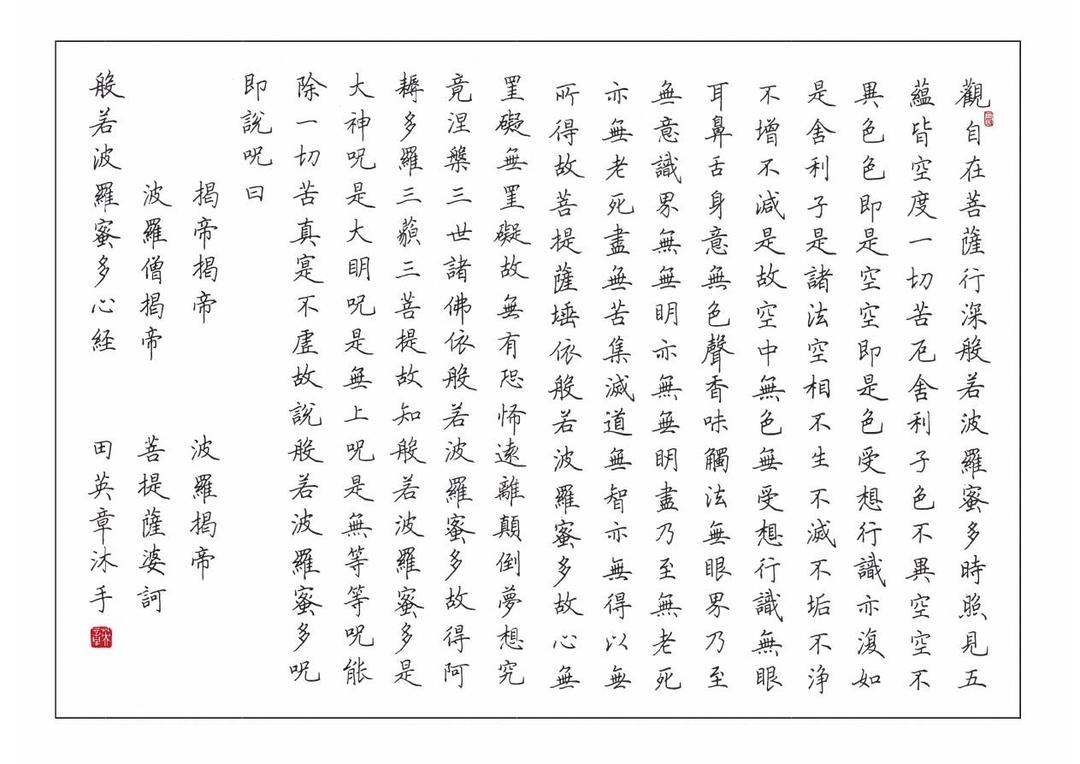 觀自在菩薩行深般若波羅蜜多時照見五
蘊皆空度一切苦厄舍利子色不異空空不
異色色即是空空即是色受想行識亦復如
是舍利子是諸法空相不生不滅不垢不浄
不增不減是故空中無色無受想行識無眼
耳鼻舌身意無色聲香味觸法無眼界乃至
無意識界無無明亦無無明盡乃至無老死
亦無老死盡無苦集滅道無智亦無得以無
所得故菩提薩埵依般若波羅蜜多故心無
罣礙無罣礙故無有恐怖遠離顛倒夢想究
竟涅槃三世諸佛依般若波羅蜜多故得阿
耨多羅三藐三菩提故知般若波羅蜜多是
大神呪是大明呪是無上呪是無等等呪能
除一切苦真寔不虛故說般若波羅蜜多呪
即說呪曰
揭帝揭帝 波羅揭帝
波羅僧揭帝 菩提薩婆訶
般若波羅蜜多心経 田英章沐手